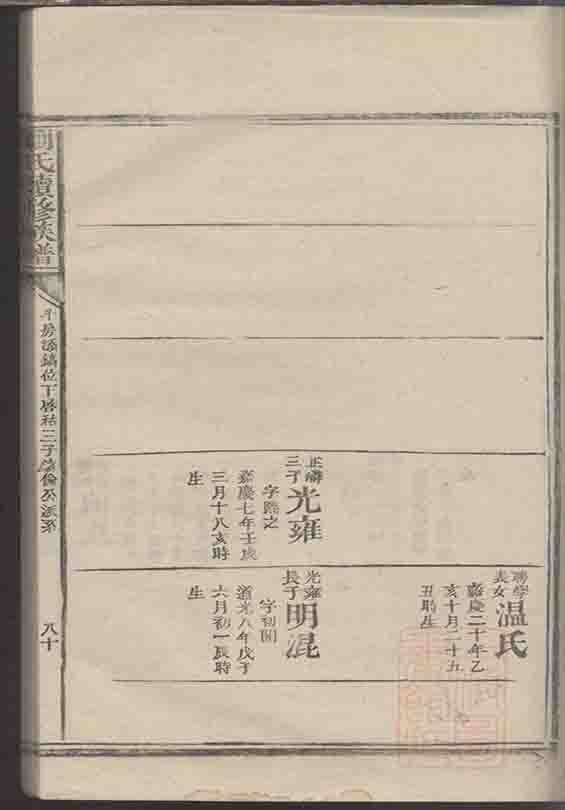 聘學
表女
溫氏
嘉慶二十年乙
亥十月二十五
丑時生
正嶙
三子
光雍
字熙之
嘉慶七年壬戌
三月十八亥時
生
光雍
長子
明混
字初開
道光八年戊子
六月初一辰時
生
劉氏續修族譜
位下
三子
公派系
八十